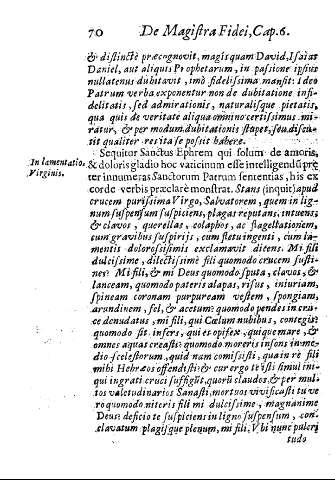 70 De Magiſtra Fidei, Cap. 6.
& diſtinctè præcognovit, magis quam David, Iſaias
Daniel, aut aliquis Prophetarum, in paſſione ipſius
nullatenus dubitavit, imò fideliſſima manſit: Ideo
Patrum verba exponuntur non de dubitatione infi-
delitatis, ſed admirationis, naturaliſque pietatis,
qua quis de veritate aliqua omnino certiſſimus mi-
ratur, & per modum dubitationis ſtupet, ſeu diſcu-
tit qualiter res ita ſe poſsit habere.
In lamentatio. Virginis.
Sequitur Sanctus Ephrem qui ſolum de amoris,
& doloris gladio hoc vaticinum eſſe intelligendũ præ
ter innumeras Sanctorum Patrum ſententias, his ex
corde verbis præclarè monſtrat. Stans (inquit) apud
crucem puriſsima Virgo, Salvatorem, quem in lig-
num ſuſpenſum ſuſpiciens, plagas reputans, intuens;
& clavos, querellas, colaphos, ac flagellationem,
cum gravibus ſuſpirijs, cum fletu ingenti, cum la-
mentis doloroſiſsimis exclamavit dicens. Mi fili
dulciſsime, dilectiſsimè fili quomodo crucem ſuſti-
nes? Mi fili, & mi Deus quomodo ſputa, clavos, &
lanceam, quomodo pateris alapas, riſus, iniuriam,
ſpineam coronam purpuream veſtem, ſpongiam,
arundinem, fel, & acetum? quomodo pendes in cru-
ce denudatus, mi fili, qui Cœlum nubibus, contegis?
quomodo ſit inſers, qui es opifex, qui que mare, &
omnes aquas creaſti: quomodo moreris inſons in me-
dio ſceleſtorum, quid nam comiſsiſti, qua in re fili
mihi Hebræos offendiſti: & cur ergo te iſti ſimul ini-
qui ingrati cruci ſuffigũt, quorũ claudos, & per mul-
tos valetudinarios Sanaſti, mortuos vivificaſti tu ve
ro quomodo niteris fili mi dulciſsime, magnanime
Deus? deficio te ſuſpiciens in ligno ſuſpenſum, con-
clavatum plagiſque plenum, mi fili, Vbi nunc pulcri
tudo